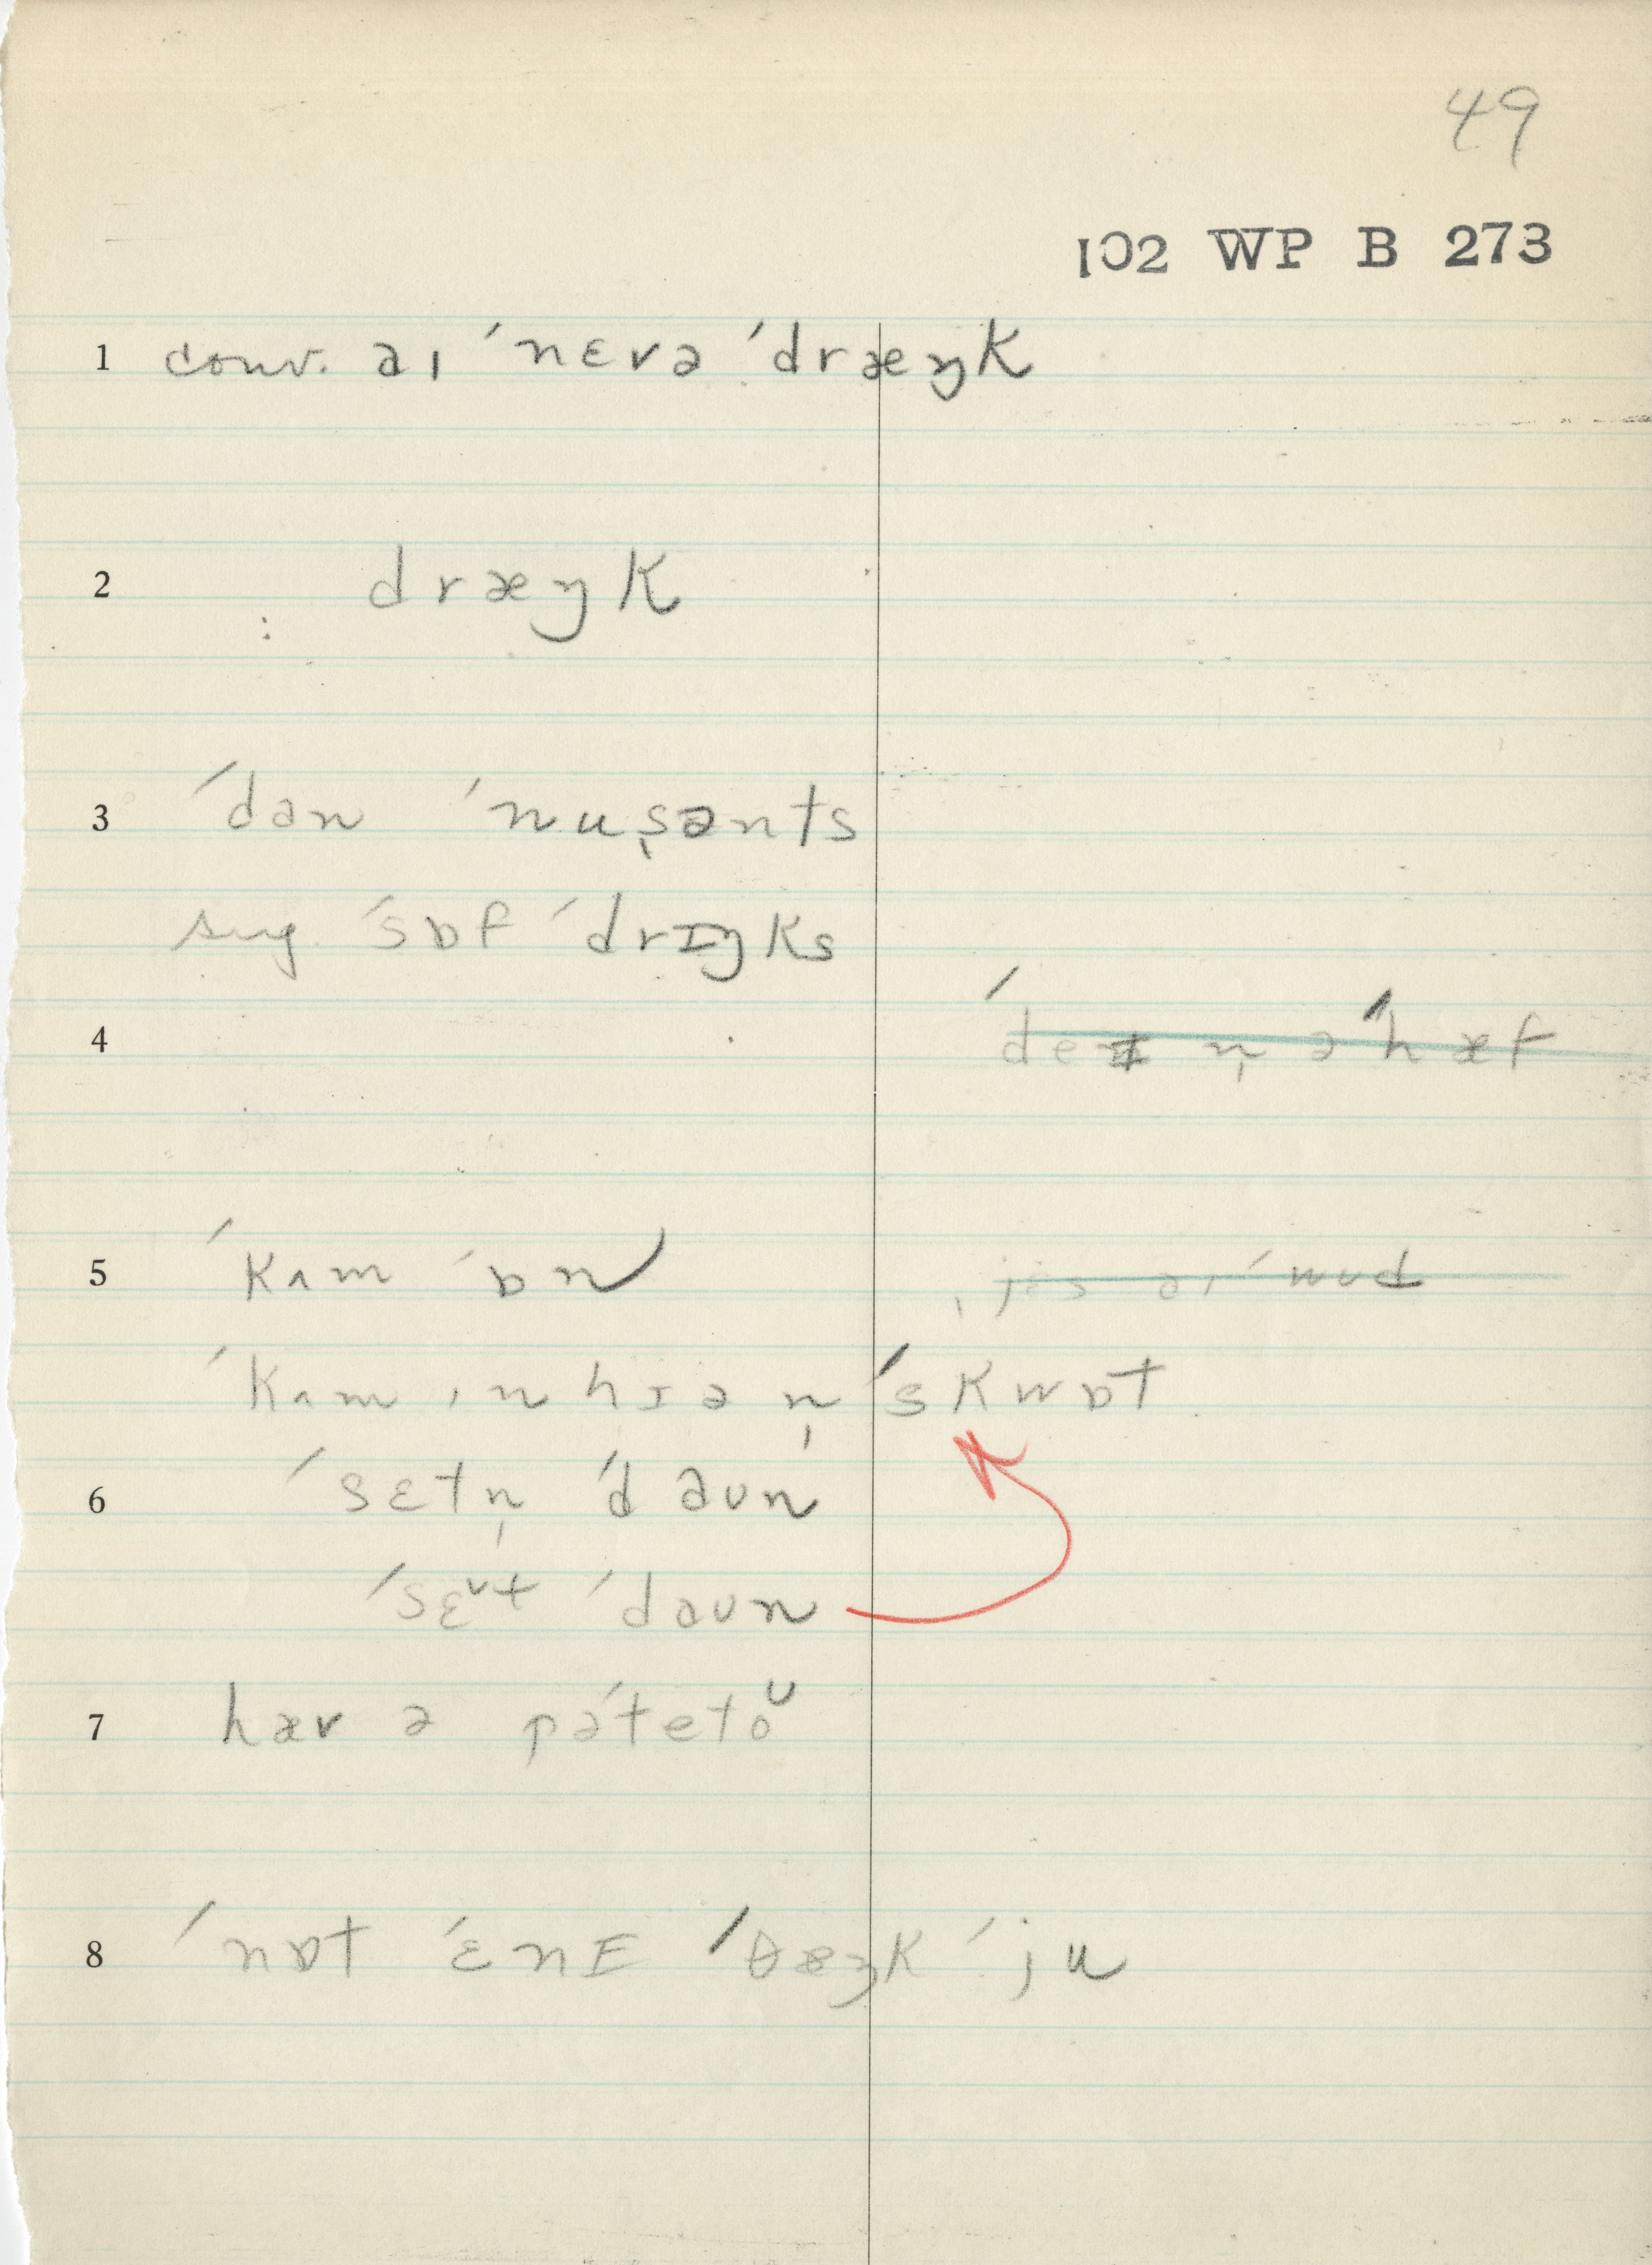 49
102 WP B 273
1 conv. aı ˈnɛvə ˈdræŋk
2 : dræŋk
3 ˈdan ˈnusə̩nts
sug. ˈsɒf ˈdrɪŋks
4 ˈdeɪ n̩ ə ˈhæf
5 ˈkʌm ˈɒn ˌjɛs aı ˈwud
ˈkʌm ın hɪə n̩ ˈskwɒt
6 ˈsɛtn̩ ˈdaun
ˈsɛᶹt ˈdaun
7 hæv ə pəˈtetoᶹ
8 ˈnɒt ˈɛnɪ ˈθæŋk ˈju